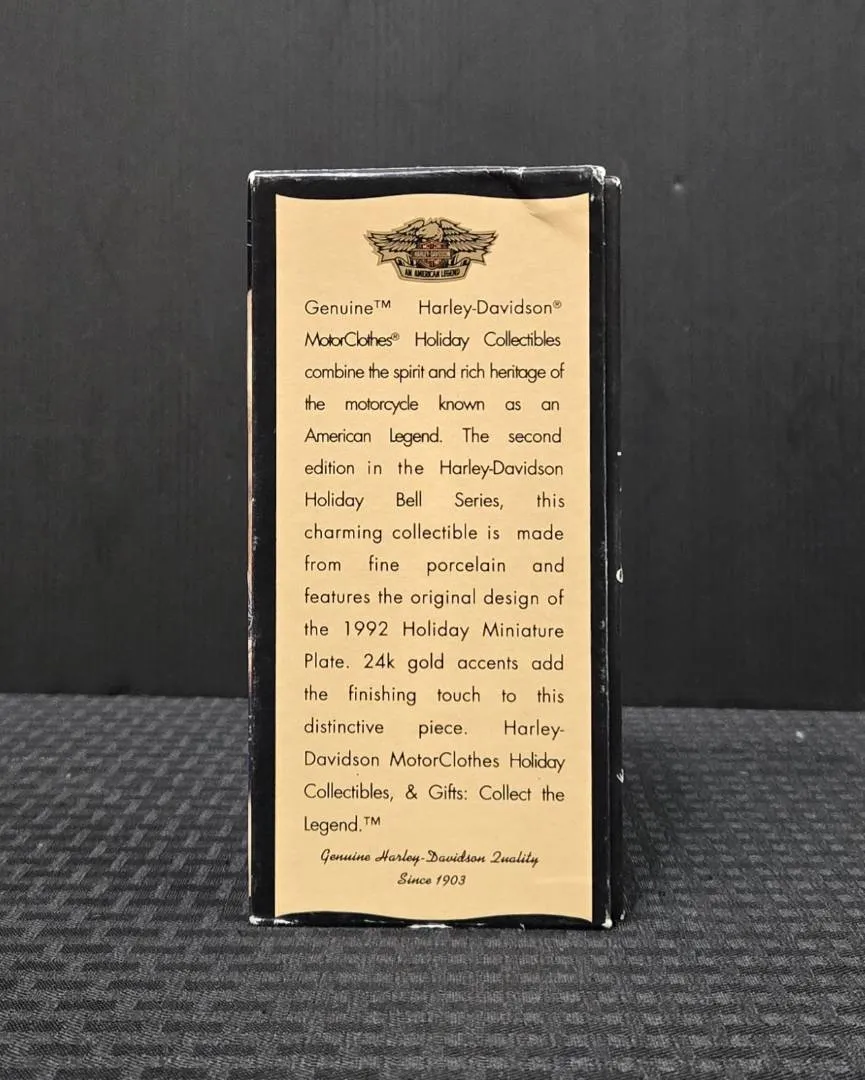 HARLEY-DAVIDSON
AN AMERICAN LEGEND
Genuine™ Harley-Davidson®
MotorClothes® Holiday Collectibles
combine the spirit and rich heritage of
the motorcycle known as an
American Legend. The second
edition in the Harley-Davidson
Holiday Bell Series, this
charming collectible is made
from fine porcelain and
features the original design of
the 1992 Holiday Miniature
Plate. 24k gold accents add
the finishing touch to this
distinctive piece. Harley-
Davidson MotorClothes Holiday
Collectibles, & Gifts: Collect the
Legend.™
Genuine Harley-Davidson Quality
Since 1903